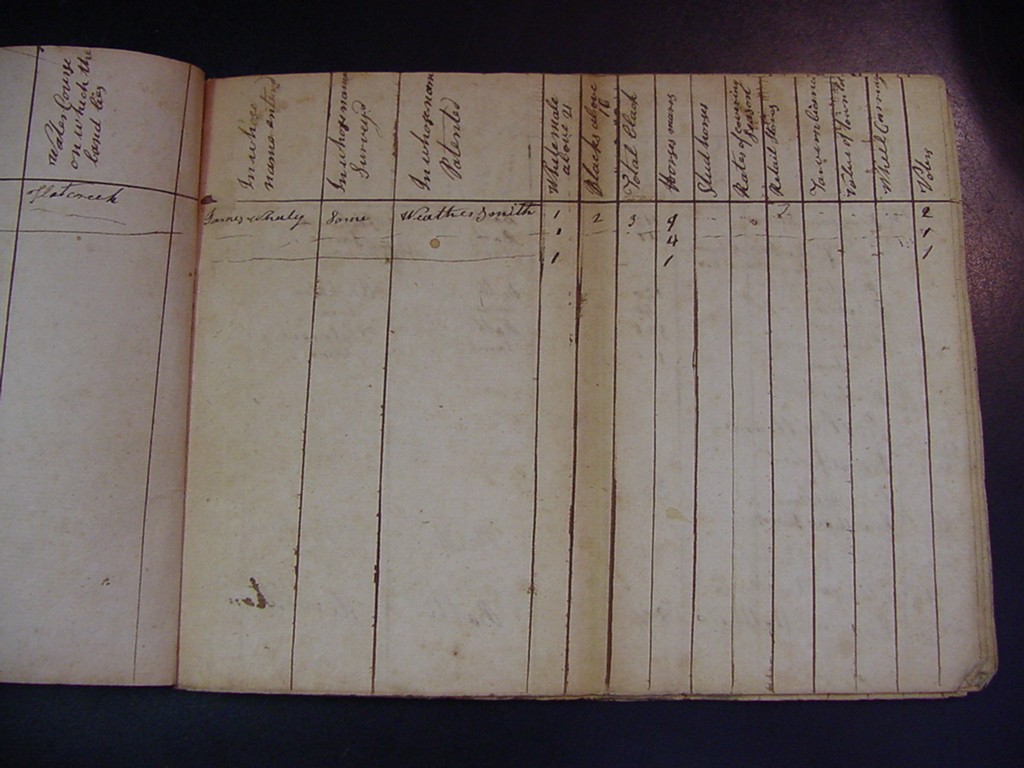 Water Course
on which the
land lies
In whose
name entered
In whose name
Surveyed
In whose name
Patented
White male
above 21
Blacks above
16
Total Black
Horses mares
Stud horses
Rates of covering
Season
Retail Stores
Tavern licence
Value of Town lots
Wheel Carriages
Voters
Flat creek
James Whaly Same Weather Smith 1 2 3 9 2
1 4 1
1 1 1